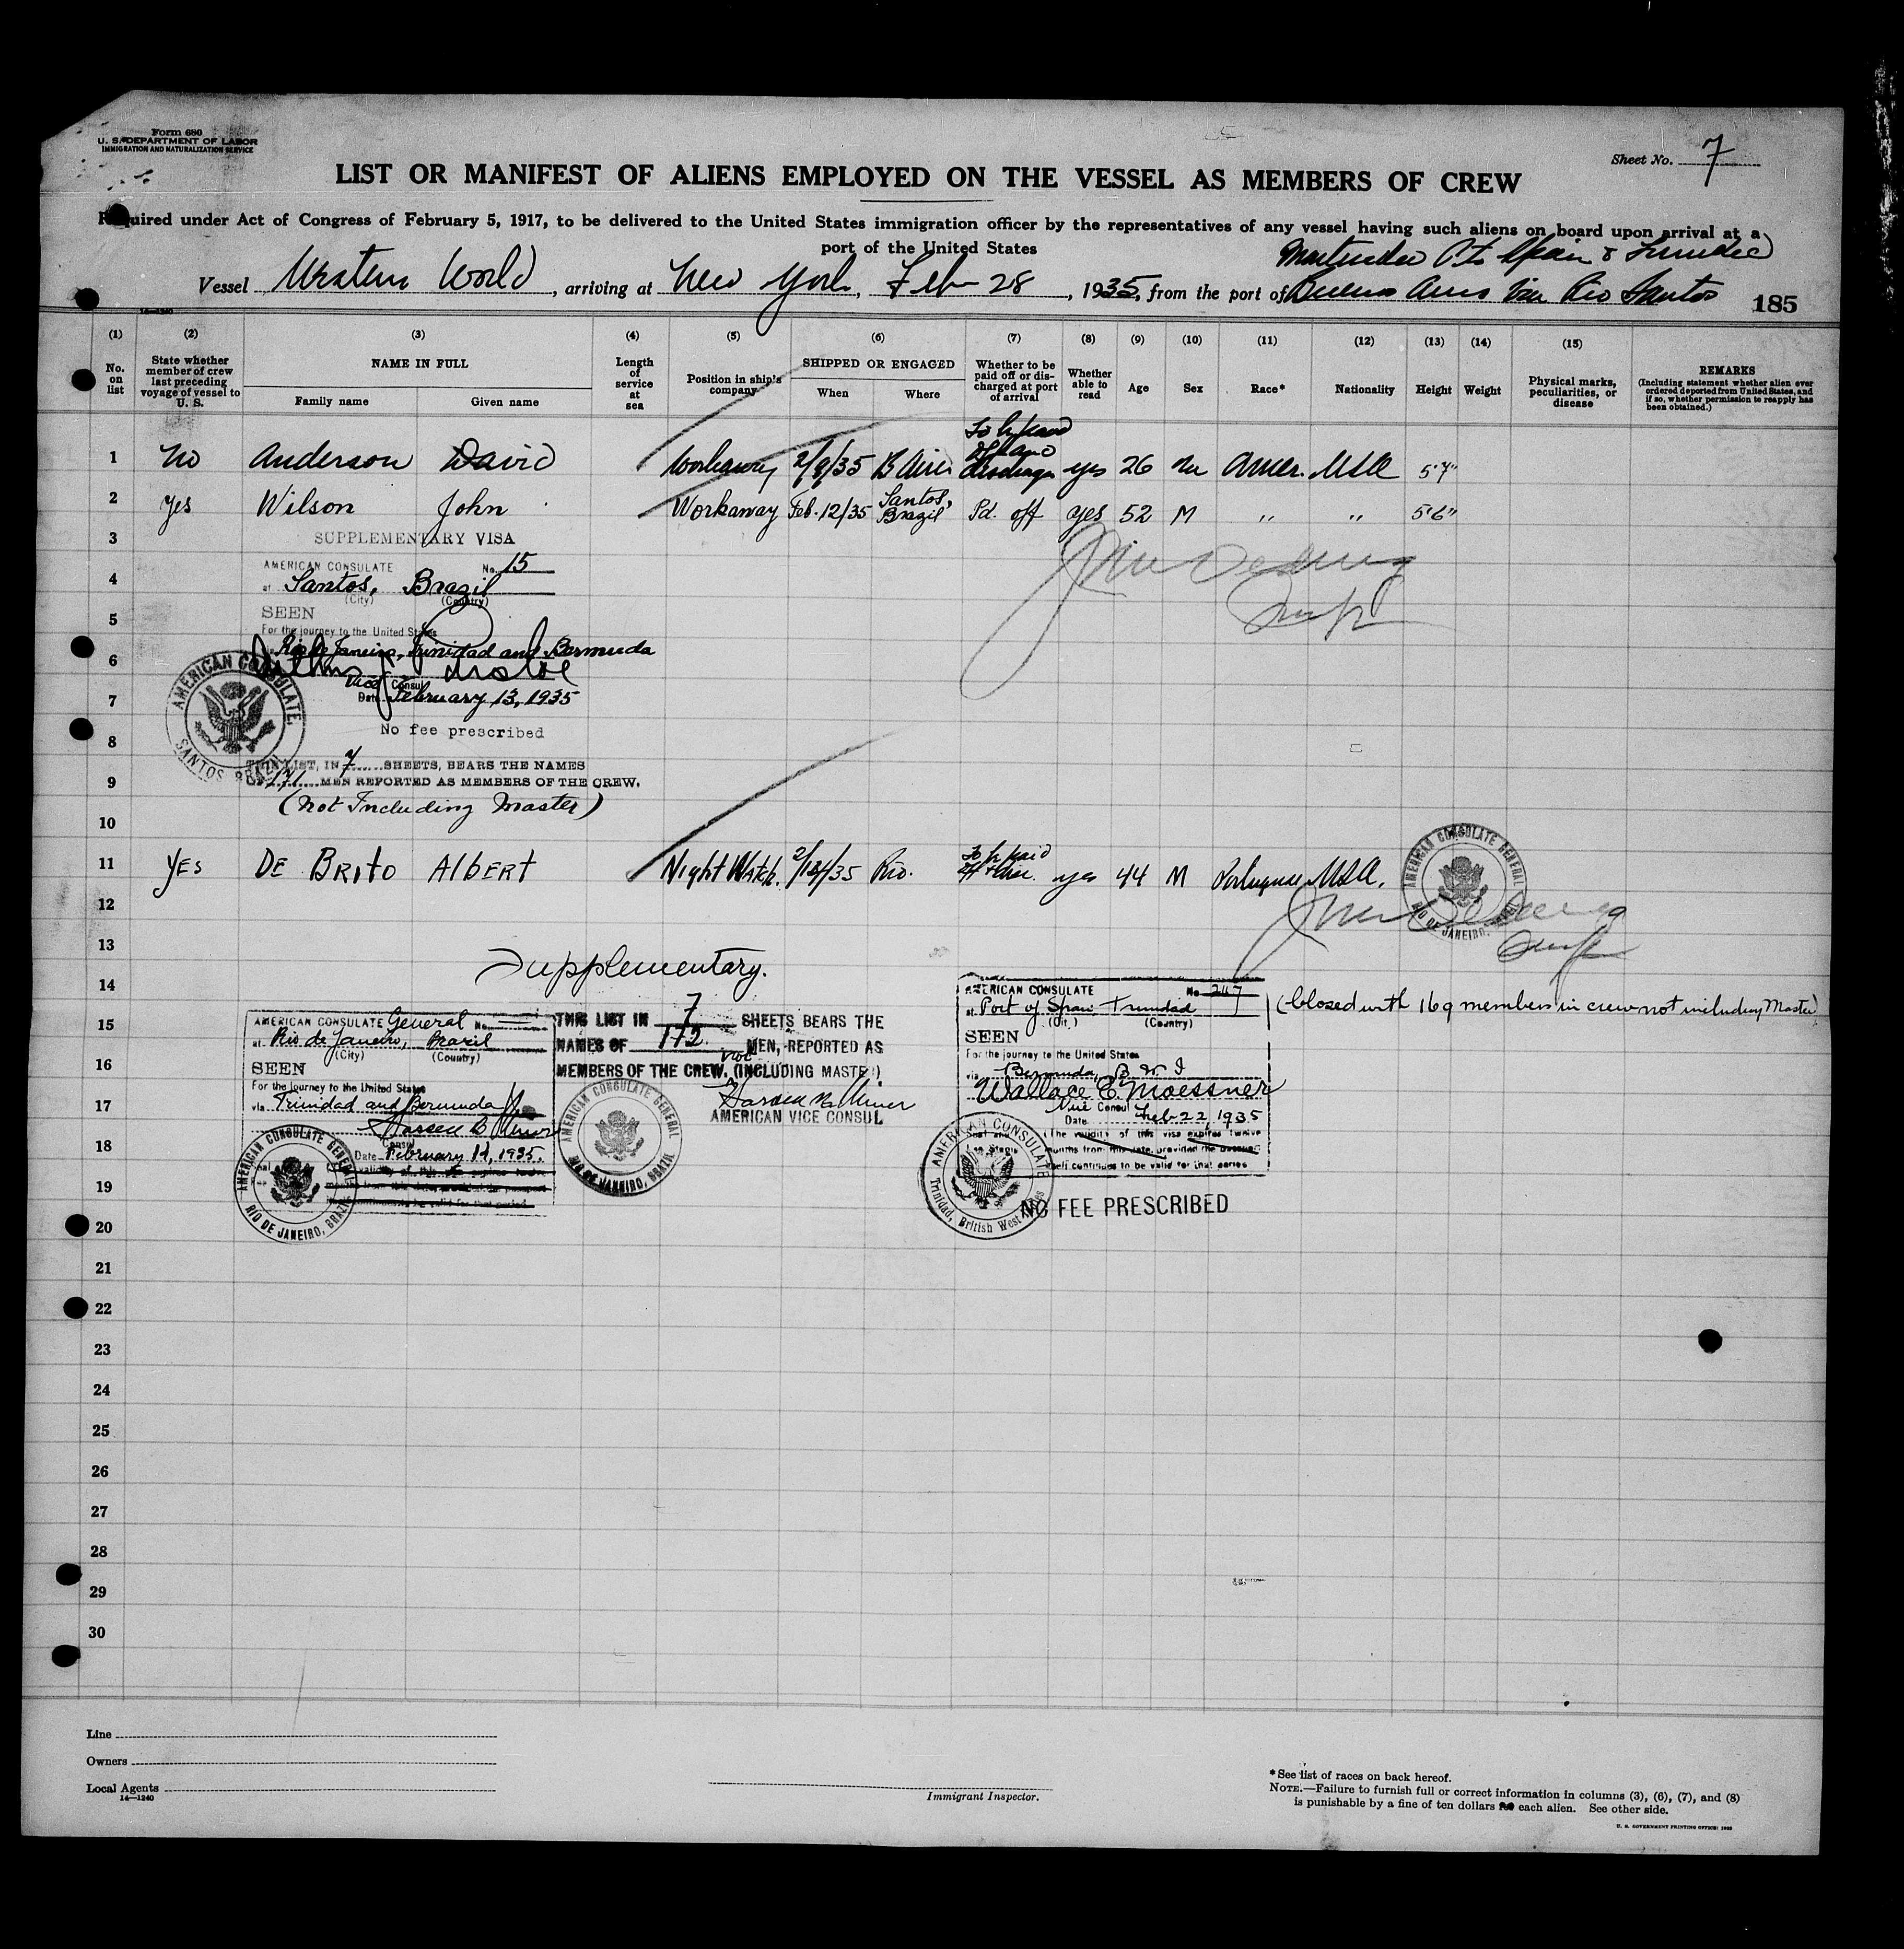 Form 680
U. S. DEPARTMENT OF LABOR
IMMIGRATION AND NATURALIZATION SERVICE
Sheet No. 7
LIST OR MANIFEST OF ALIENS EMPLOYED ON THE VESSEL AS MEMBERS OF CREW
Required under Act of Congress of February 5, 1917, to be delivered to the United States immigration officer by the representatives of any vessel having such aliens on board upon arrival at a
port of the United States
Vessel Western World, arriving at New York, Feb 28, 1935, from the port of Buenos Aires via Rio Santos
185
14—1240
(1) (2) (3) (4) (5) (6) (7) (8) (9) (10) (11) (12) (13) (14) (15)
No. on list
State whether member of crew last preceding voyage of vessel to U. S.
NAME IN FULL
Family name Given name
Length of service at sea
Position in ship's company
SHIPPED OR ENGAGED
When Where
Whether to be paid off or discharged at port of arrival
Whether able to read
Age
Sex
Race*
Nationality
Height
Weight
Physical marks, peculiarities, or disease
REMARKS
(Including statement whether alien ever ordered deported from United States, and if so, whether permission to reapply has been obtained.)
1 No Anderson David Workaway 2/8/35 B Aires To be paid off and discharge yes 26 M Amer. USA 5'7"
2 Yes Wilson John Workaway Feb. 12/35 Santos, Brazil Pd. off yes 52 M " " 5'6"
3
SUPPLEMENTARY VISA
AMERICAN CONSULATE No. 15
4
at Santos, Brazil
(City) (Country)
5
SEEN
For the journey to the United States
Rio de Janeiro, Trinidad and Bermuda
6
Vice Consul
7
Date February 13, 1935
No fee prescribed
8
AMERICAN CONSULATE
SANTOS BRAZIL
THIS LIST, IN 7 SHEETS, BEARS THE NAMES
9
OF 171 MEN REPORTED AS MEMBERS OF THE CREW.
(Not Including Master)
10
11 YES DE BRITO ALBERT Night Watch. Rio. To be paid off + disc. yes 44 M Portuguese USA.
AMERICAN CONSULATE GENERAL
RIO DE JANEIRO, BRAZIL
12
13
Supplementary.
14
AMERICAN CONSULATE General No.
at Rio de Janeiro, Brazil
(City) (Country)
SEEN
For the journey to the United States
via Trinidad and Bermuda
Consul
Date February 14, 1935.
AMERICAN CONSULATE GENERAL
RIO DE JANEIRO, BRAZIL
THIS LIST IN 7 SHEETS BEARS THE
NAMES OF 172 MEN, REPORTED AS
MEMBERS OF THE CREW. (not INCLUDING MASTER)
AMERICAN VICE CONSUL
AMERICAN CONSULATE GENERAL
RIO DE JANEIRO, BRAZIL
AMERICAN CONSULATE No 247
at Port of Spain Trinidad
(City) (Country)
SEEN
For the journey to the United States
via Bermuda, B. W. I
Wallace E. Moessner
Vice Consul
Date Feb 22, 1935
(The validity of this visa expires twelve
months from this date, provided the passport
itself continues to be valid for that period
AMERICAN CONSULATE
Trinidad, British West Indies
NO FEE PRESCRIBED
(Closed with 169 members in crew not including Master)
15
16
17
18
19
20
21
22
23
24
25
26
27
28
29
30
Line
Owners
Local Agents
14—1240
Immigrant Inspector.
*See list of races on back hereof.
NOTE.—Failure to furnish full or correct information in columns (3), (6), (7), and (8)
is punishable by a fine of ten dollars for each alien. See other side.
U. S. GOVERNMENT PRINTING OFFICE: 1933